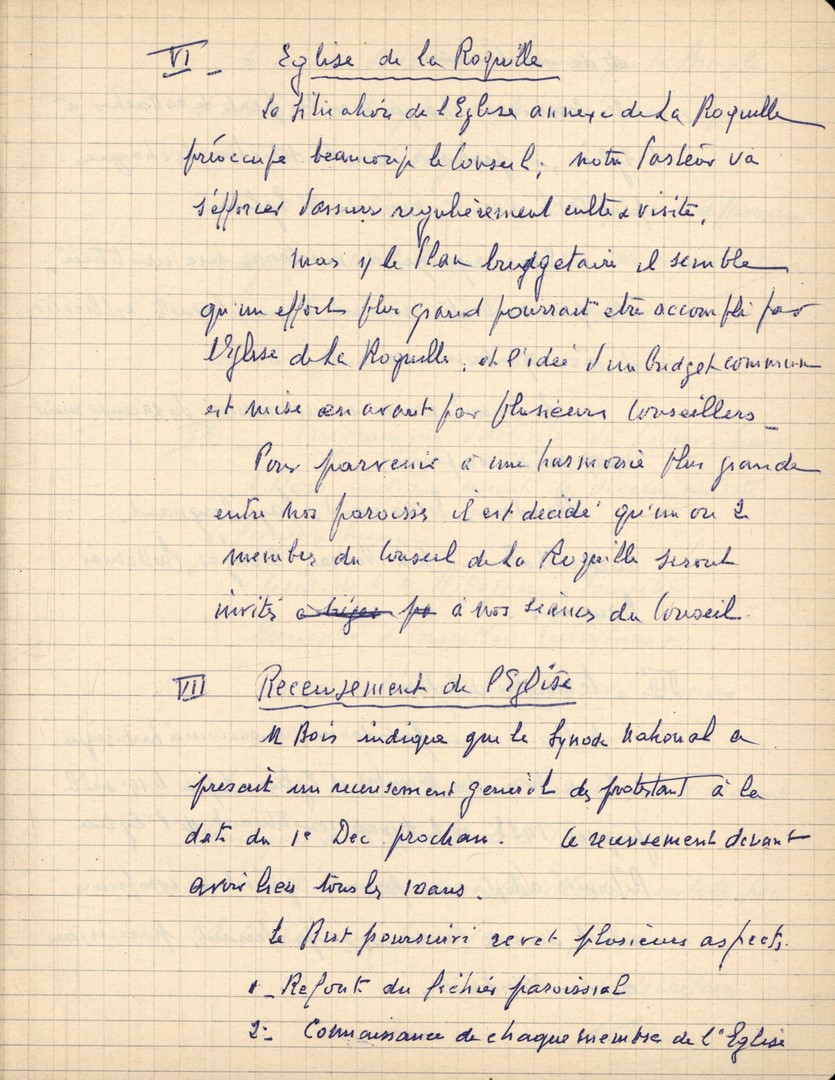 VI_ Eglise de la Roquille
La situation de l'Eglise annexe de La Roquille
préoccupe beaucoup le Conseil; notre Pasteur va
s'efforcer d'assurer regulièrement culte & visite.
mais le Plan budgetaire il semble
qu'un effort plus grand pourrait etre accompli par
l'Eglise de La Roquille, et l'idée d'un budget commun
est mise en avant par plusieurs Conseillers_
Pour parvenir à une harmonie plus grande
entre nos paroisses il est décidé qu'un ou 2
membres du Conseil de La Roquille seront
invités à nos séances du Conseil.
VII Recensement de l'Eglise
M Bois indique que le Synode National a
prescrit un recensement général des protestant à la
date du 1e Dec prochain. Ce recensement devant
avoir lieu tous les 10 ans.
Le But poursuivi revet plusieurs aspects.
1_ Refonte du fichier paroissial
2_ Connaissance de chaque membre de l'Eglise